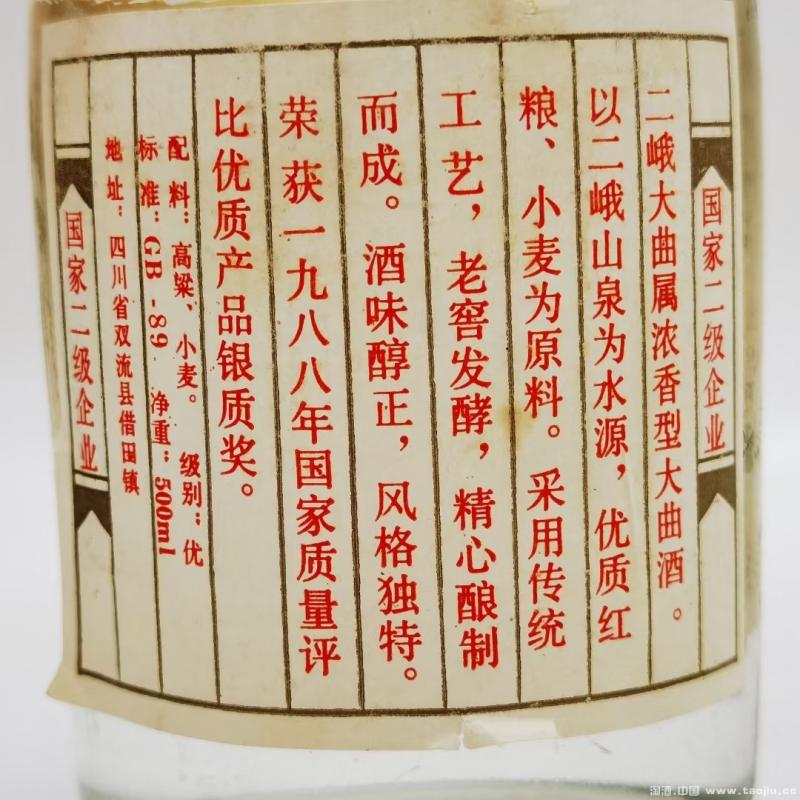 国家二级企业
二峨大曲属浓香型大曲酒。
以二峨山泉为水源，优质红
粮、小麦为原料。采用传统
工艺，老窖发酵，精心酿制
而成。酒味醇正，风格独特。
荣获一九八八年国家质量评
比优质产品银质奖。
配料：高粱、小麦。 级别：优
标准：GB-89 净重：500ml
地址：四川省双流县借田镇
国家二级企业
淘酒.中国 www.taojiu.cc